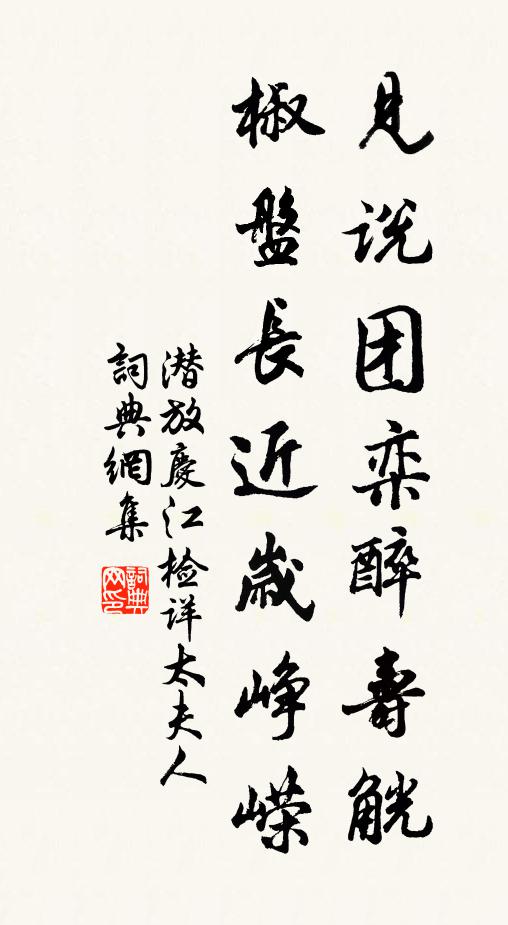 见说团栾醉寿觥
椒盤長近歲峥嵘
潜放慶江检详太夫人
詞典網集
詞典网印